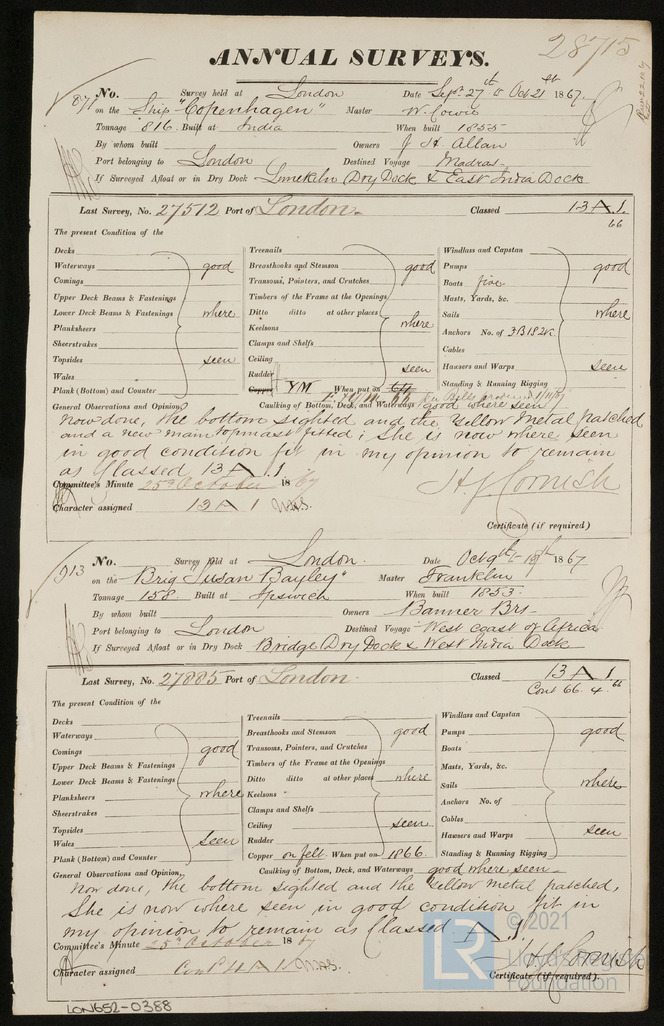 28715
ANNUAL SURVEYS.
871 No. Survey held at London Date Sept 27th to Oct 21st 1867.
on the Ship "Copenhagen" Master W. Cowie
Tonnage 816. Built at India When built 1855
By whom built Owners J H. Allan
Port belonging to London Destined Voyage Madras
If Surveyed Afloat or in Dry Dock Limekiln Dry Dock & East India Dock
Last Survey, No. 27512 Port of London. Classed 13 A 1.
66
The present Condition of the
Decks Treenails Windlass and Capstan
Waterways good Breasthooks and Stemson good Pumps good
Comings Transoms, Pointers, and Crutches Boats five
Upper Deck Beams & Fastenings Timbers of the Frame at the Openings Masts, Yards, &c.
Lower Deck Beams & Fastenings where Ditto ditto at other places where Sails where
Planksheers Keelsons Anchors No. of 3B 1S 2K.
Sheerstrakes Clamps and Shelfs Cables
Topsides seen Ceiling seen Hawsers and Warps seen
Wales Rudder
Plank (Bottom) and Counter Copper YM When put on Standing & Running Rigging
General Observations and Opinion, Caulking of Bottom, Deck, and Waterways good where seen
Now done, the bottom sighted and the Yellow Metal patched
and a new main topmast fitted; She is now where seen
in good condition fit in my opinion to remain
as Classed 13 A 1
Committee's Minute 25th October 1867 H J Cornish
Character assigned 13 A 1
Certificate (if required)
913 No. Survey held at London. Date Oct 9th 1867
on the Brig "Susan Bayley" Master Franklin
Tonnage 158 Built at Ipswich When built 1853.
By whom built Owners Banner Brs
Port belonging to London Destined Voyage West Coast of Africa
If Surveyed Afloat or in Dry Dock Bridge Dry Dock & West India Dock
Last Survey, No. 27885 Port of London. Classed 13 A 1
Cont 66. 4. 66
The present Condition of the
Decks Treenails Windlass and Capstan
Waterways Breasthooks and Stemson good Pumps good
Comings good Transoms, Pointers, and Crutches Boats
Upper Deck Beams & Fastenings Timbers of the Frame at the Openings Masts, Yards, &c.
Lower Deck Beams & Fastenings Ditto ditto at other places where Sails where
Planksheers where Keelsons Anchors No. of
Sheerstrakes Clamps and Shelfs Cables
Topsides Ceiling seen Hawsers and Warps seen
Wales seen Rudder
Plank (Bottom) and Counter Copper on felt When put on 1866. Standing & Running Rigging
General Observations and Opinion, Caulking of Bottom, Deck, and Waterways good where seen
Now done, the bottom sighted and the Yellow Metal patched,
She is now where seen in good condition fit in
my opinion to remain as Classed A 1
Committee's Minute 25th October 1867 H J Cornish
Character assigned Cont 4 A 1
Certificate (if required).
LON652-0388
LR © 2021
Lloyd's Register
Foundation